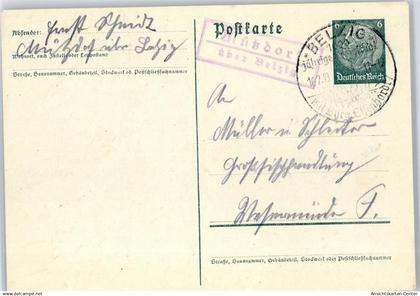 Absender: Ernst Schmidt
Mützdorf über Belzig
Wohnort, auch Zustell- oder Leitpostamt
Straße, Hausnummer, Gebäudeteil, Stockwerk od. Postschließfachnummer
Postkarte
Mützdorf
über Belzig
BELZIG
6 6
Deutsches Reich
An
Müller &
Großfischhandlung
Wesermünde F.
Straße, Hausnummer, Gebäudeteil, Stockwerk oder Postschließfachnummer